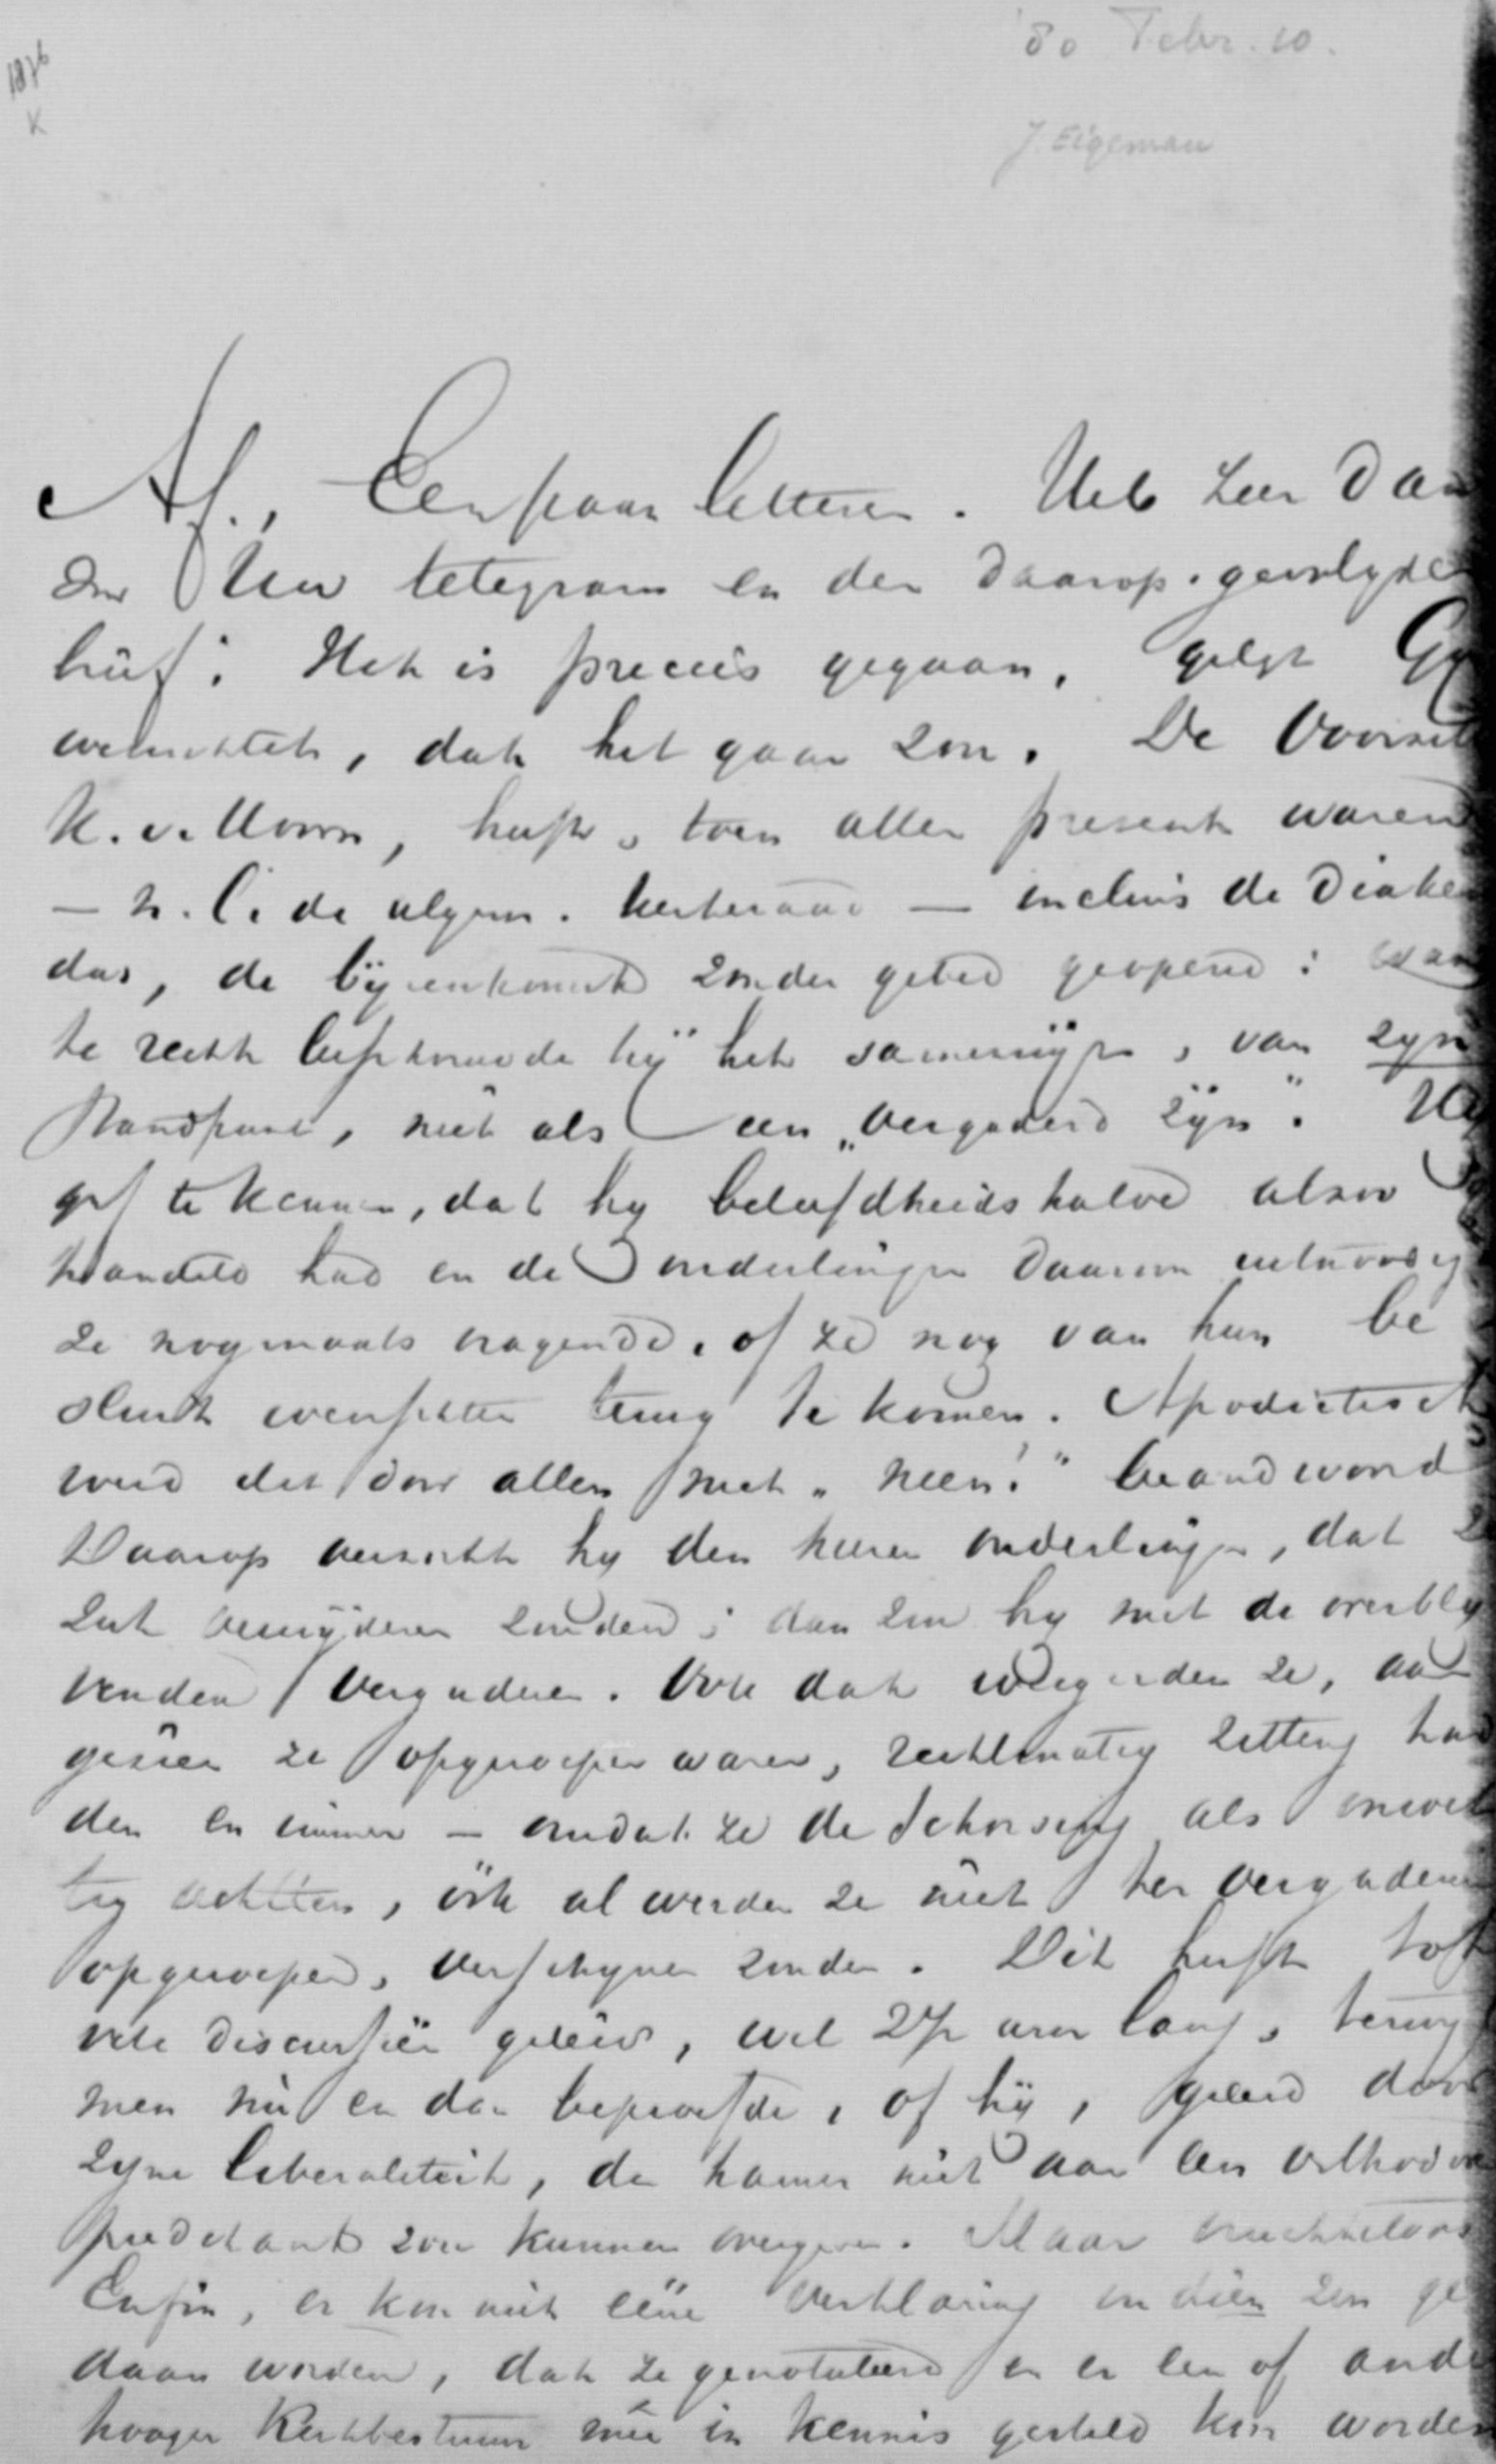 '80 Febr. 10.
1876
K
J. Eigeman
Af., Een paar letteren. Heb zeer Dan
Uw telegram en den daarop gevolgden
brief. Het is precies gegaan, gelijk Gy
verwachtet, dat het gaan zou. De Voorzit
heeft, toen allen present waren
— n. l. de algem. kerkeraad — incluis de Diake
, de byeenkomst zonder gebed geopend:
te recht beschouwde hij het samenzyn, van zyn
standpunt, niet als een „vergaderd zyn". Hy
gaf te kennen, dat hy beleefdheidshalve alzoo
handeld had en de ouderlingen daarom
ze nogmaals vragende, of ze nog van hun be
sluit wenschten terug te komen. Apodictisch
werd dit door allen met „neen!" beandwoord
Daarop verzocht hy den heeren ouderlingen, dat
zich verwyderen zouden; dan zou hy met de overbly
venden vergaderen. Ook dat weigerden ze, aan
gezien ze opgeroepen waren, rechtmatig zitting had
den en immer — omdat ze de schorsing als onwet
tig achtten, ook al werden ze niet ter vergadering
opgeroepen, verschynen zouden. Dit heeft tot
vele discussiën geleid, wel 2½ uur lang, terwyl
men nu en dan beproefde, of hij, geleid door
zyne liberaliteit, de hamer niet aan een orthodoxe
predikant zou kunnen overgeven. Maar vruchteloos
Enfin, er kon niet eene verklaring in dien zin ge
daan worden, dat ze genotuleerd en er een of ande
hooger Kerkbestuur mee in kennis gesteld kon worden